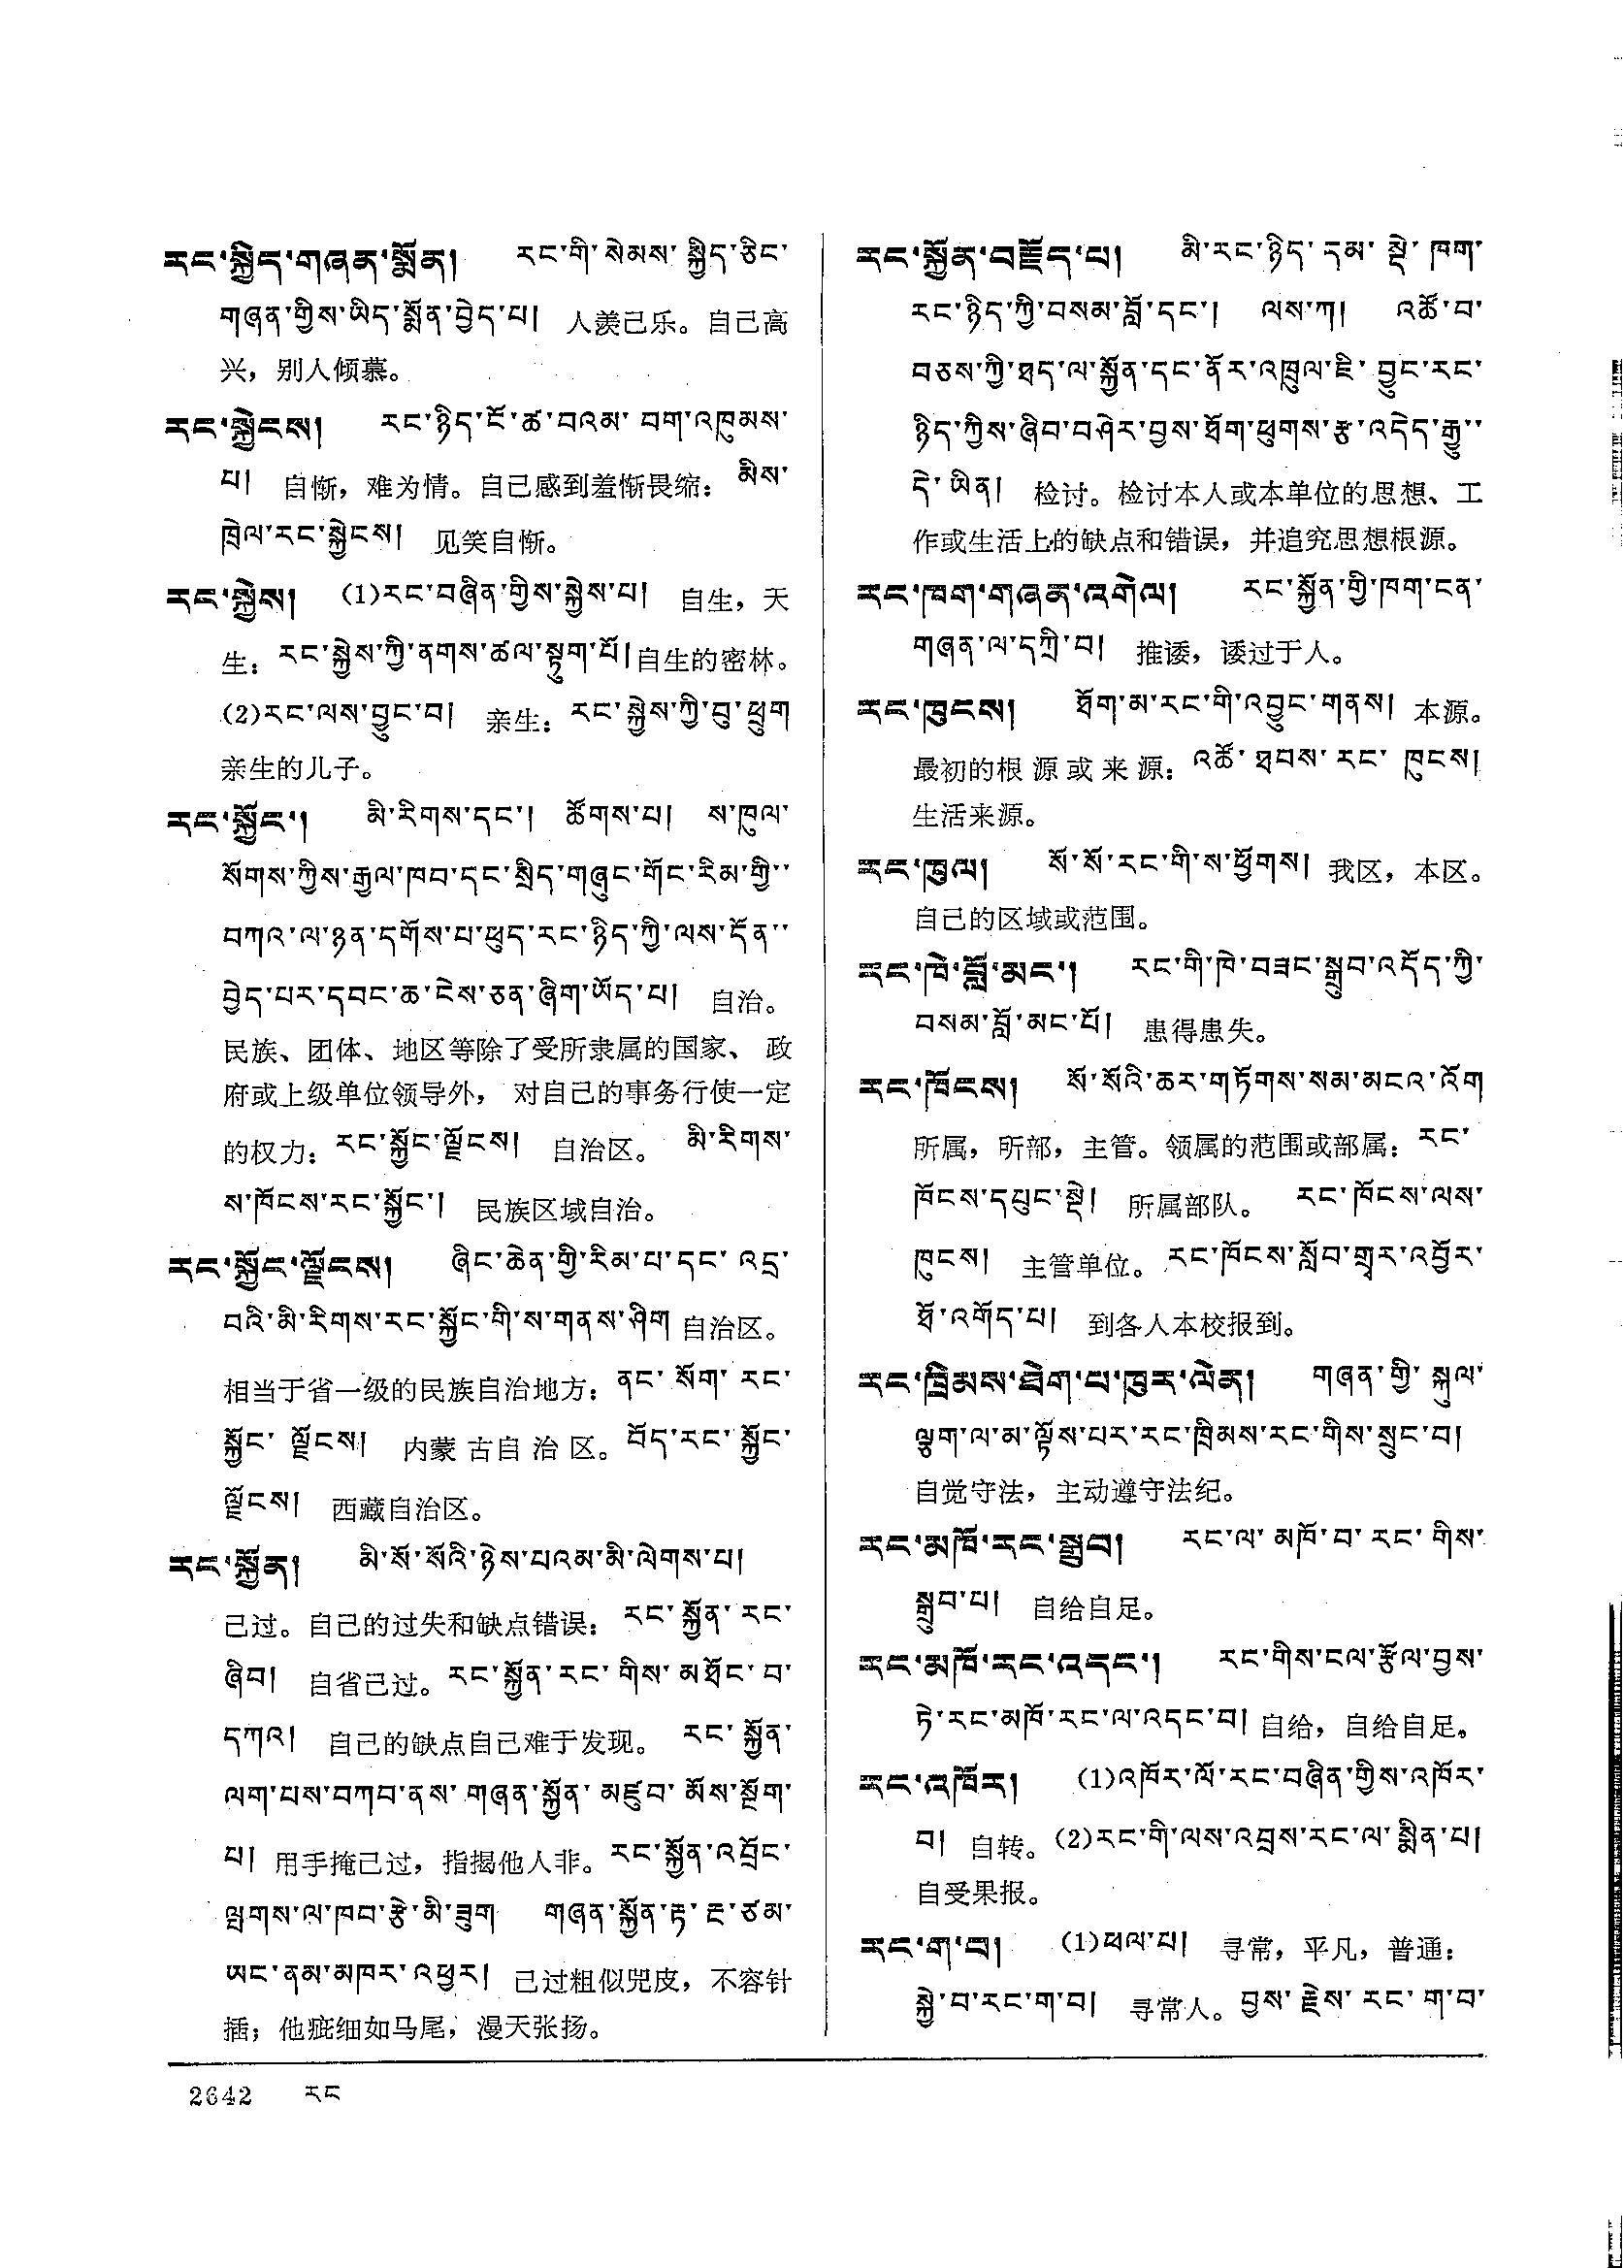 རང་སྐྱིད་གཞན་སྨོན། རང་གི་སེམས་སྐྱིད་ཅིང་
གཞན་གྱིས་ཡིད་སྨོན་བྱེད་པ། 人羡己乐。自己高
兴，别人倾慕。
རང་སྐྱེངས། རང་ཉིད་ངོ་ཚ་བའམ་བག་འཁུམས་
པ། 自惭，难为情。自己感到羞惭畏缩：མིས་
ཁྲེལ་རང་སྐྱེངས། 见笑自惭。
རང་སྐྱེས། (1)རང་བཞིན་གྱིས་སྐྱེས་པ། 自生，天
生：རང་སྐྱེས་ཀྱི་ནགས་ཚལ་སྟུག་པོ། 自生的密林。
(2)རང་ལས་བྱུང་བ། 亲生：རང་སྐྱེས་ཀྱི་བུ་ཕྲུག
亲生的儿子。
རང་སྐྱོང་། མི་རིགས་དང་། ཚོགས་པ། ས་ཁུལ་
སོགས་ཀྱིས་རྒྱལ་ཁབ་དང་སྲིད་གཞུང་གོང་རིམ་གྱི་་
བཀའ་ལ་ཉན་དགོས་པ་ཕུད་རང་ཉིད་ཀྱི་ལས་དོན་་
བྱེད་པར་དབང་ཆ་ངེས་ཅན་ཞིག་ཡོད་པ། 自治。
民族、团体、地区等除了受所隶属的国家、政
府或上级单位领导外，对自己的事务行使一定
的权力：རང་སྐྱོང་ལྗོངས། 自治区。 མི་རིགས་
ས་ཁོངས་རང་སྐྱོང་། 民族区域自治。
རང་སྐྱོང་ལྗོངས། ཞིང་ཆེན་གྱི་རིམ་པ་དང་འདྲ་
བའི་མི་རིགས་རང་སྐྱོང་གི་ས་གནས་ཤིག 自治区。
相当于省一级的民族自治地方：ནང་སོག་རང་
སྐྱོང་ལྗོངས། 内蒙古自治区。བོད་རང་སྐྱོང་
ལྗོངས། 西藏自治区。
རང་སྐྱོན། མི་སོ་སོའི་ཉེས་པའམ་མི་ལེགས་པ།
己过。自己的过失和缺点错误：རང་སྐྱོན་རང་
ཞིབ། 自省己过。རང་སྐྱོན་རང་གིས་མཐོང་བ་
དཀའ། 自己的缺点自己难于发现。 རང་སྐྱོན་
ལག་པས་བཀབ་ནས་གཞན་སྐྱོན་མཛུབ་མོས་སྔོག་
པ། 用手掩己过，指揭他人非。རང་སྐྱོན་འབྲོང་
ལྤགས་ལ་ཁབ་རྩེ་མི་ཟུག གཞན་སྐྱོན་རྟ་རྔ་ཙམ་
ཡང་ནམ་མཁར་འཕྱར། 己过粗似兕皮，不容针
插；他疵细如马尾，漫天张扬。
རང་སྐྱོན་བརྗོད་པ། མི་རང་ཉིད་དམ་སྡེ་ཁག་
རང་ཉིད་ཀྱི་བསམ་བློ་དང་། ལས་ཀ། འཚོ་བ་
བཅས་ཀྱི་ཐད་ལ་སྐྱོན་དང་ནོར་འཁྲུལ་ཇི་བྱུང་རང་
ཉིད་ཀྱིས་ཞིབ་བཤེར་བྱས་ཐོག་ཕུགས་རྩ་འདེད་རྒྱུ་་
དེ་ཡིན། 检讨。检讨本人或本单位的思想、工
作或生活上的缺点和错误，并追究思想根源。
རང་ཁག་གཞན་འགེལ། རང་སྐྱོན་གྱི་ཁག་ངན་
གཞན་ལ་དཀྲི་བ། 推诿，诿过于人。
རང་ཁུངས། ཐོག་མ་རང་གི་འབྱུང་གནས། 本源。
最初的根源或来源：འཚོ་ཐབས་རང་ཁུངས།
生活来源。
རང་ཁུལ། སོ་སོ་རང་གི་ས་ཕྱོགས། 我区，本区。
自己的区域或范围。
རང་ཁེ་བློ་མང་། རང་གི་ཁེ་བཟང་སྒྲུབ་འདོད་ཀྱི་
བསམ་བློ་མང་པོ། 患得患失。
རང་ཁོངས། སོ་སོའི་ཆར་གཏོགས་སམ་མངའ་འོག
所属，所部，主管。领属的范围或部属：རང་
ཁོངས་དཔུང་སྡེ། 所属部队。 རང་ཁོངས་ལས་
ཁུངས། 主管单位。རང་ཁོངས་སློབ་གྲྭར་འབྱོར་
ཐོ་འགོད་པ། 到各人本校报到。
རང་ཁྲིམས་ཐེག་པ་ཁུར་ལེན། གཞན་གྱི་སྐུལ་
ལྕག་ལ་མ་ལྟོས་པར་རང་ཁྲིམས་རང་གིས་སྲུང་བ།
自觉守法，主动遵守法纪。
རང་མཁོ་རང་སྒྲུབ། རང་ལ་མཁོ་བ་རང་གིས་
སྒྲུབ་པ། 自给自足。
རང་མཁོ་རང་འདང་། རང་གིས་ངལ་རྩོལ་བྱས་
ཏེ་རང་མཁོ་རང་ལ་འདང་བ། 自给，自给自足。
རང་འཁོར། (1)འཁོར་ལོ་རང་བཞིན་གྱིས་འཁོར་
བ། 自转。(2)རང་གི་ལས་འབྲས་རང་ལ་སྨིན་པ།
自受果报。
རང་ག་བ། (1)ཕལ་པ། 寻常，平凡，普通：
སྐྱེ་བ་རང་ག་བ། 寻常人。བྱས་རྗེས་རང་ག་བ་
2642 རང